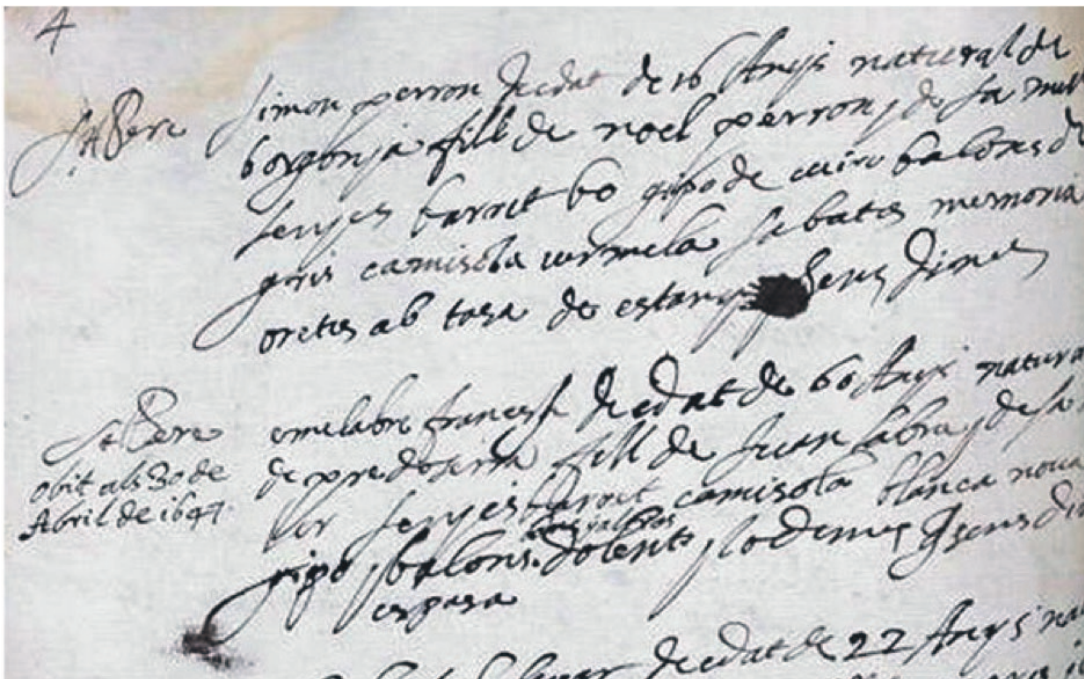 4
St Pere
Simon perron de edat de 16 Anys natural de
borgonya fill de noel perron y de sa mull
senyes barret bo gipo de cuiro balons de
gris camisola vermela sabates memoria
oretes ab tasa de estany sens dines
St Pere
obit als 30 de
Abril de 1647
frances de edat de 60 Anys natura
de fill de Juan labre y de sa
senyes barret camisola blanca noua
gipo y balons dolents y lo demes sens di
espasa
de edat de 22 Anys na